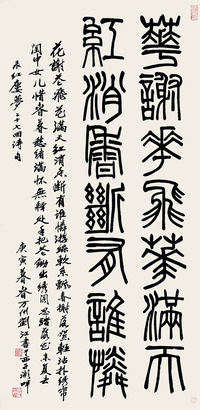 華謝華飛華滿天
紅消香斷有誰憐
花謝花飛花滿天紅消香斷有誰憐遊絲軟系飄春榭落絮輕沾撲绣帘
閨中女儿惜春暮愁緒滿懷無釋處手把花鋤出绣閨忍踏落花來复去
紅樓夢二十七回詩句
庚寅暮春万州劉江書于西子湖畔